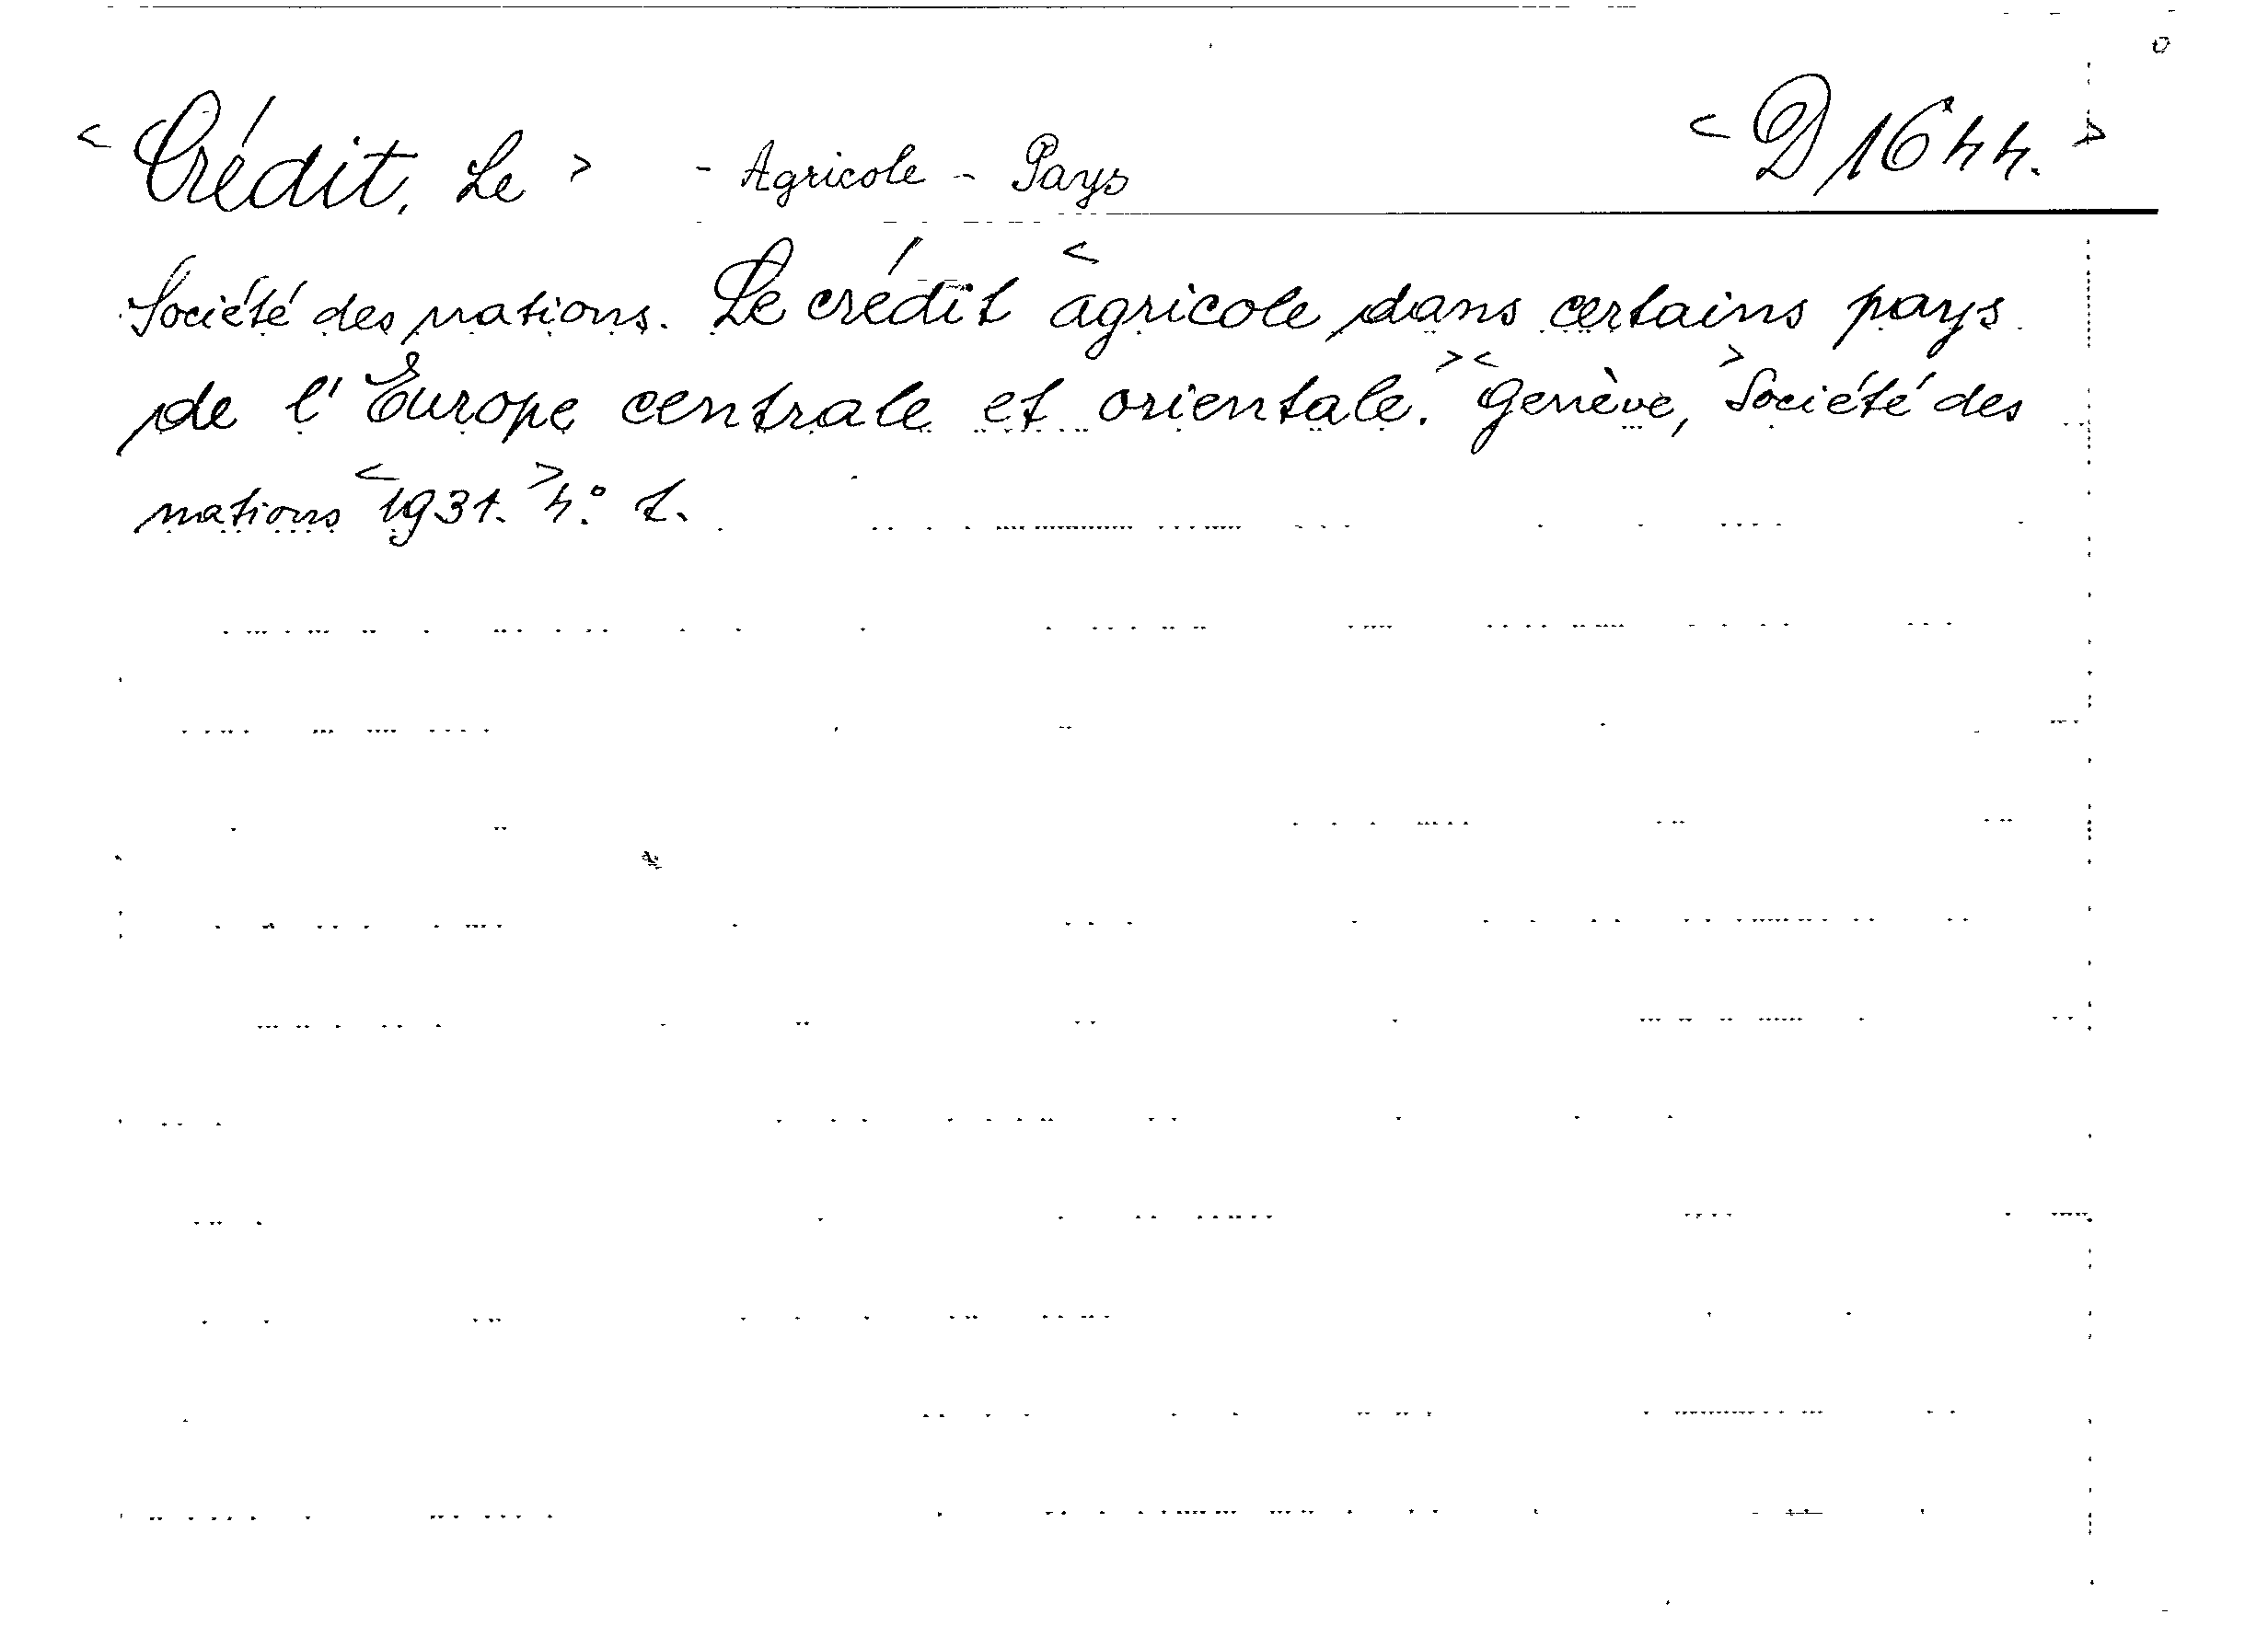 < Crédit, Le > - Agricole - Pays < D 1644. >
Société des nations. Le crédit < agricole dans certains pays
de l'Europe centrale et orientale. > < Genève, > Société des
nations < 1931. > 4° 1.